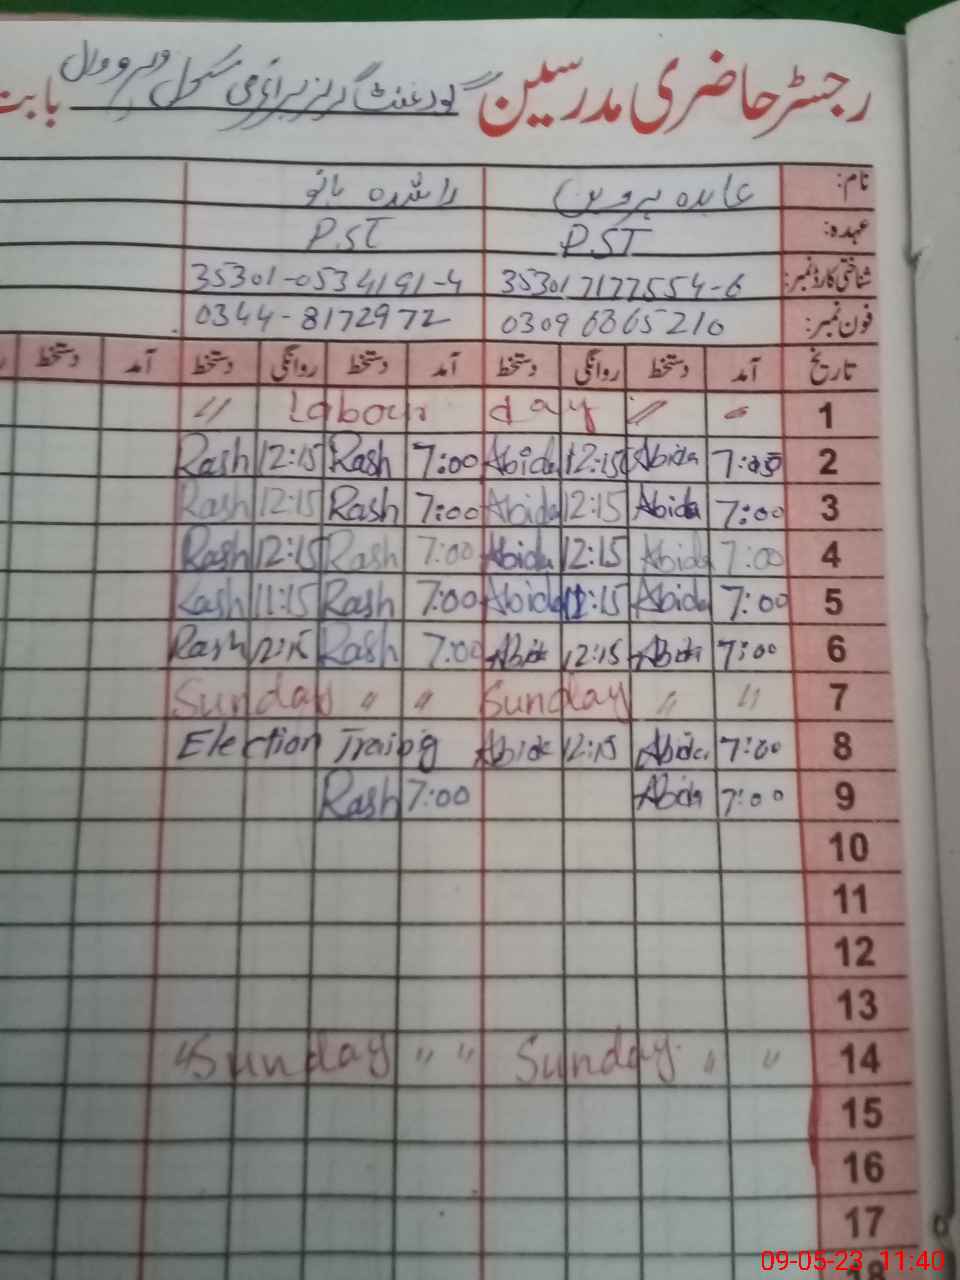 رجسٹر حاضری مدرسین گورنمنٹ گرلز پرائمری سکول بابت
نام: عابدہ پروین راشدہ بانو
عہدہ: PST PST
شناختی کارڈ نمبر: 35301 7177554-6 35301-0534191-4
فون نمبر: 0309 6365210 0344-8172972
تاریخ آمد دستخط روانگی دستخط آمد دستخط روانگی دستخط آمد دستخط
1 〃 Labour day 〃 〃
2 Rash 12:15 Rash 7:00 Abida 12:15 Abida
3 Rash 12:15 Rash 7:00 Abida 12:15 Abida 7:00
4 Rash 12:15 Rash 7:00 Abida 12:15 Abida 7:00
5 Rash 11:15 Rash 7:00 Abida Abida 7:00
6 Rash 12:15 Rash 7:00 Abida 12:15 Abida 7:00
7 Sunday 〃 〃 Sunday 〃 〃
8 Election Traing Abida 12:15 Abida 7:00
9 Rash 7:00 Abida 7:00
10
11
12
13
14 〃 Sunday 〃 〃 Sunday 〃 〃
15
16
17
18
09-05-23 11:40